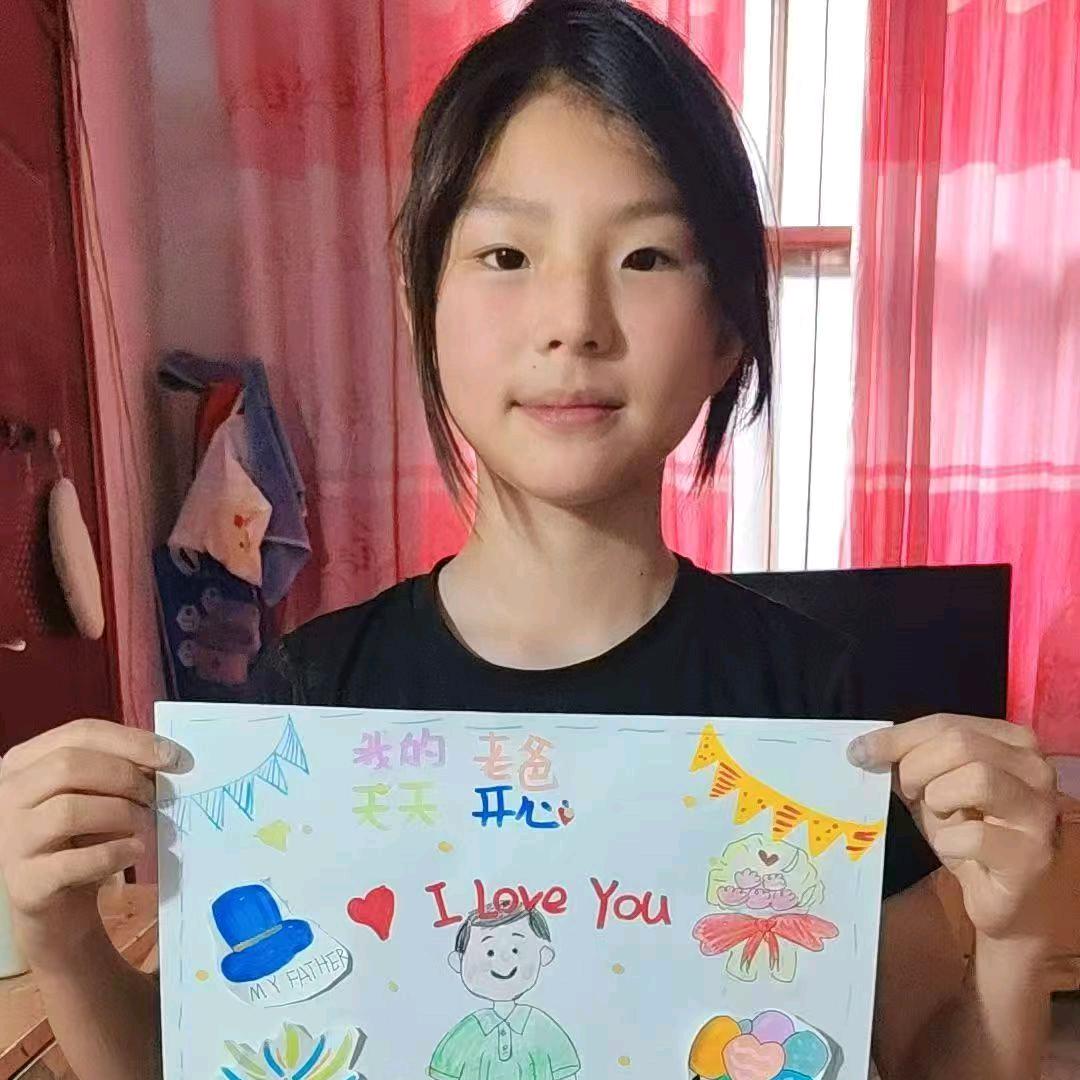 我的 老爸
天天 开心
I Love You
MY FATHER